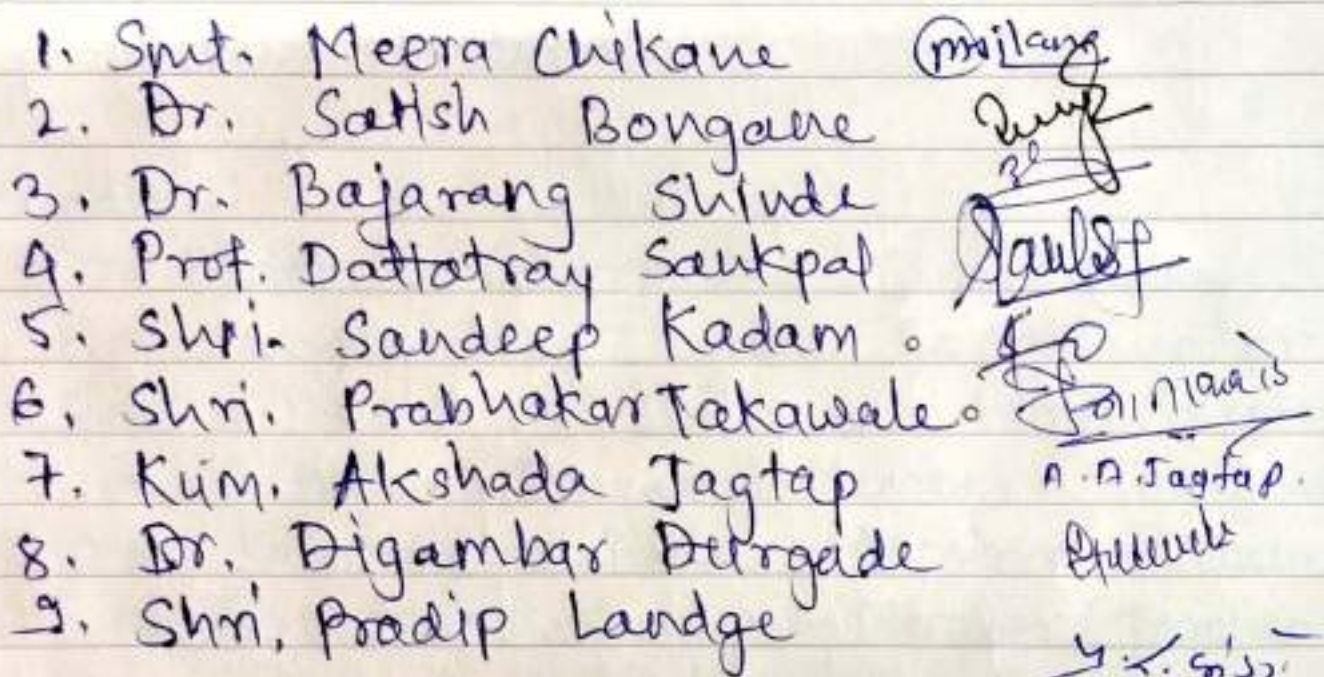 1. Smt. Meera Chikane
2. Dr. Satish Bongane
3. Dr. Bajarang Shinde
4. Prof. Dattatray Sankpal
5. Shri. Sandeep Kadam.
6. Shri. Prabhakar Takawale.
7. Kum. Akshada Jagtap A.A.Jagtap.
8. Dr. Digambar Durgade
9. Shri. Pradip Landge